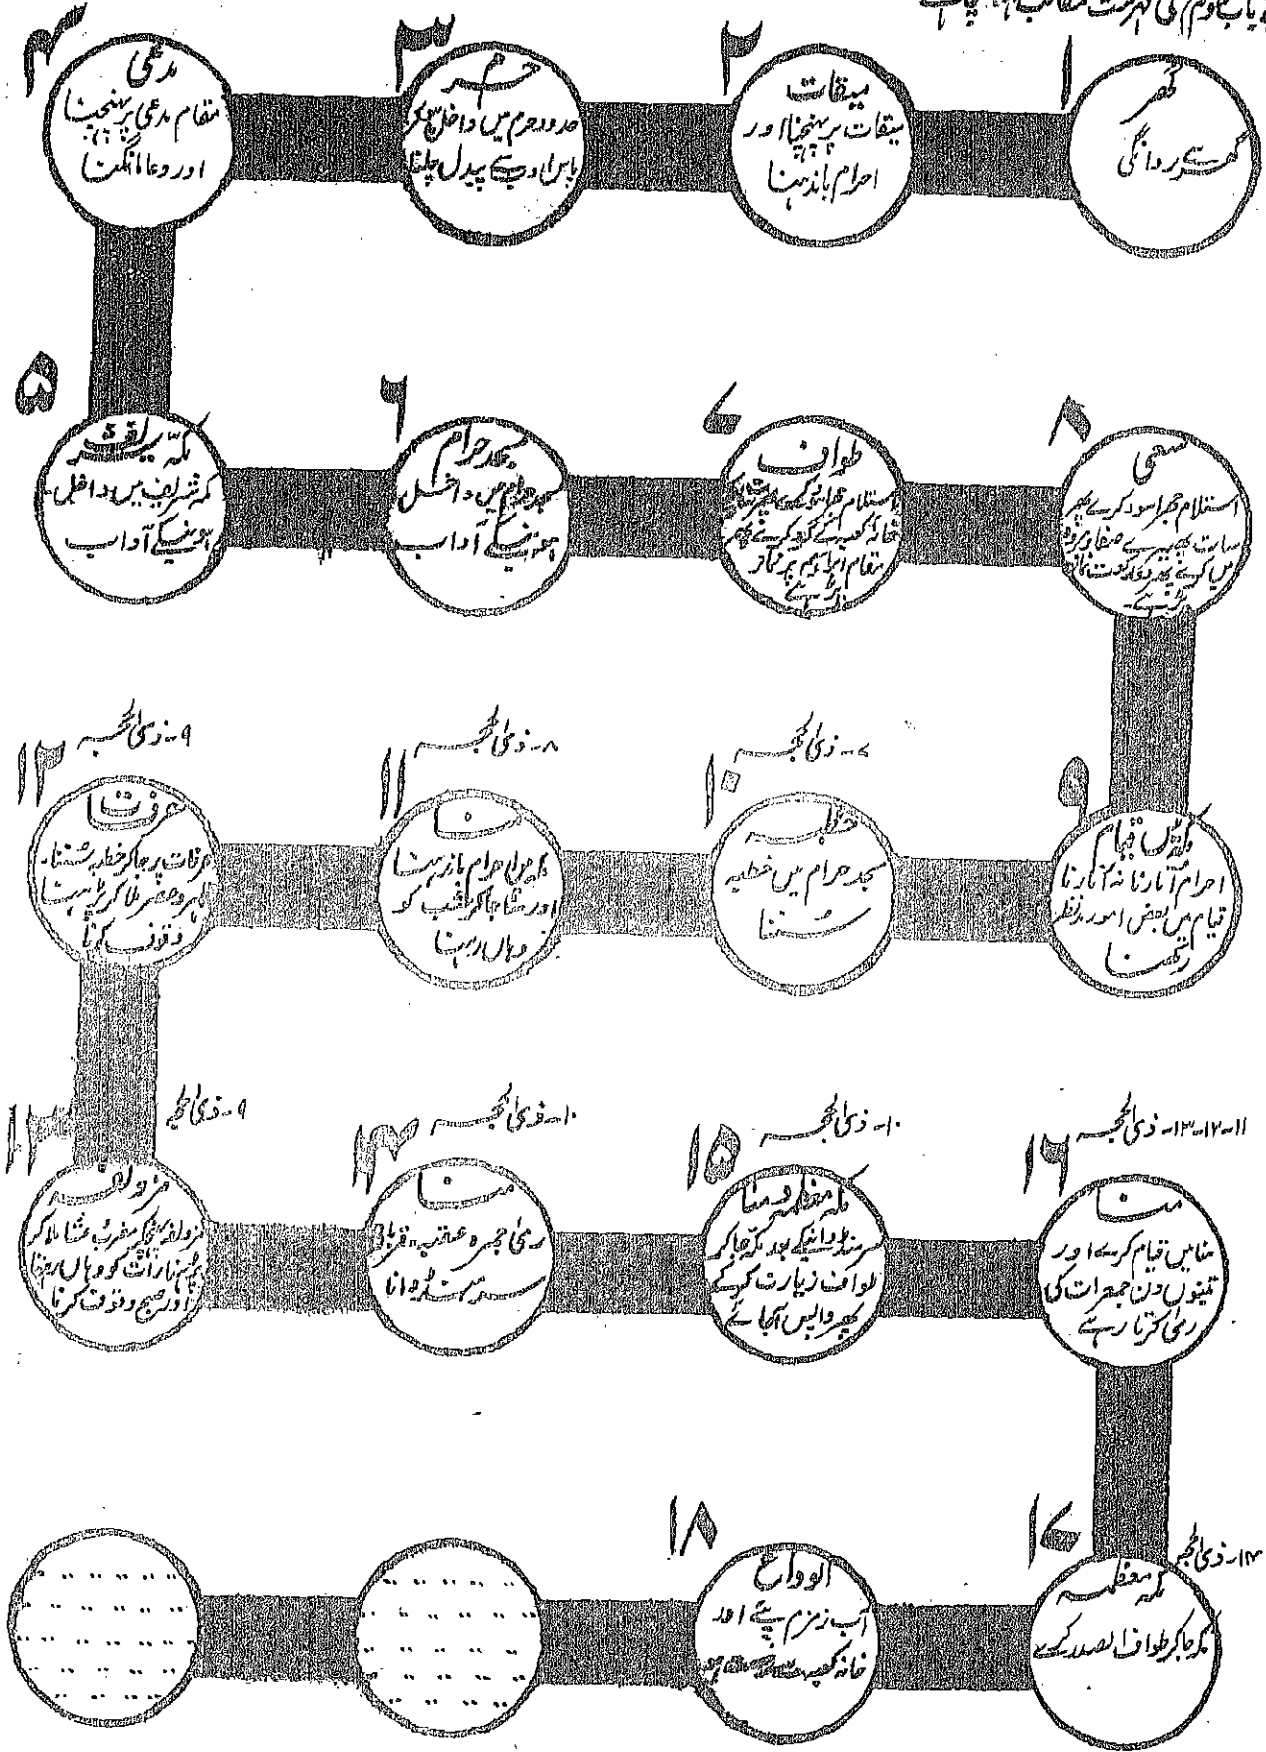 باب دوم کی فہرست مطالب
۱
گھر
گھر سے روانگی
۲
میقات
میقات پر پہنچنا اور
احرام باندہنا
۳
حرم
حدود حرم میں داخل ہو کر
پاس ادب سے پیدل چلنا
۴
مدعی
مقام مدعی پر پہنچنا
اور دعا مانگنا
۵
مکہ شریف
مکہ شریف میں داخل
ہونیکے آداب
۶
مسجد حرام
مسجد حرام میں داخل
ہونیکے آداب
۷
طواف
استلام حجر اسود کرکے
خانہ کعبہ کے گرد کرے پھر
مقام ابراہیم پر نماز
پڑہے
۸
سعی
استلام حجر اسود کرے پھر
سات پھیرے صفا و مروہ
میں کرے پھر دو رکعت نماز
پڑہے۔
۹
مکہ میں قیام
احرام اتارنا نہ اتارنا
قیام میں بعض امور مدنظر
رکھنا
۷۔ ذی الحجہ
۱۰
خطبہ
مسجد حرام میں خطبہ
سننا
۸۔ ذی الحجہ
۱۱
منا
احرام باندہنا
اور منا جا کر شب کو
وہاں رہنا
۹۔ ذی الحجہ
۱۲
عرفات
عرفات پر جا کر خطبہ سننا۔
ظہر و عصر ملا کر پڑہنا
وقوف کرنا
۹۔ ذی الحجہ
۱۳
مزدلفہ
مزدلفہ پہنچکر مغرب عشا ملا کر
پڑہنا رات کو وہاں رہنا
اور صبح وقوف کرنا
۱۰۔ ذی الحجہ
۱۴
منا
رمی جمرہ عقبہ۔ قربانی
سر منڈوانا
۱۰۔ ذی الحجہ
۱۵
مکہ معظمہ و منا
سر منڈوانیکے بعد مکہ جا کر
طواف زیارت کرکے
پھر واپس آجائے
۱۱-۱۲-۱۳۔ ذی الحجہ
۱۶
منا
منا میں قیام کرے اور
تینوں دن جمرات کی
رمی کرتا رہے
۱۳۔ ذی الحجہ
۱۷
مکہ معظمہ
مکہ جا کر طواف الصدر کرے
۱۸
الوداع
آب زمزم پیئے اور
خانہ کعبہ سے